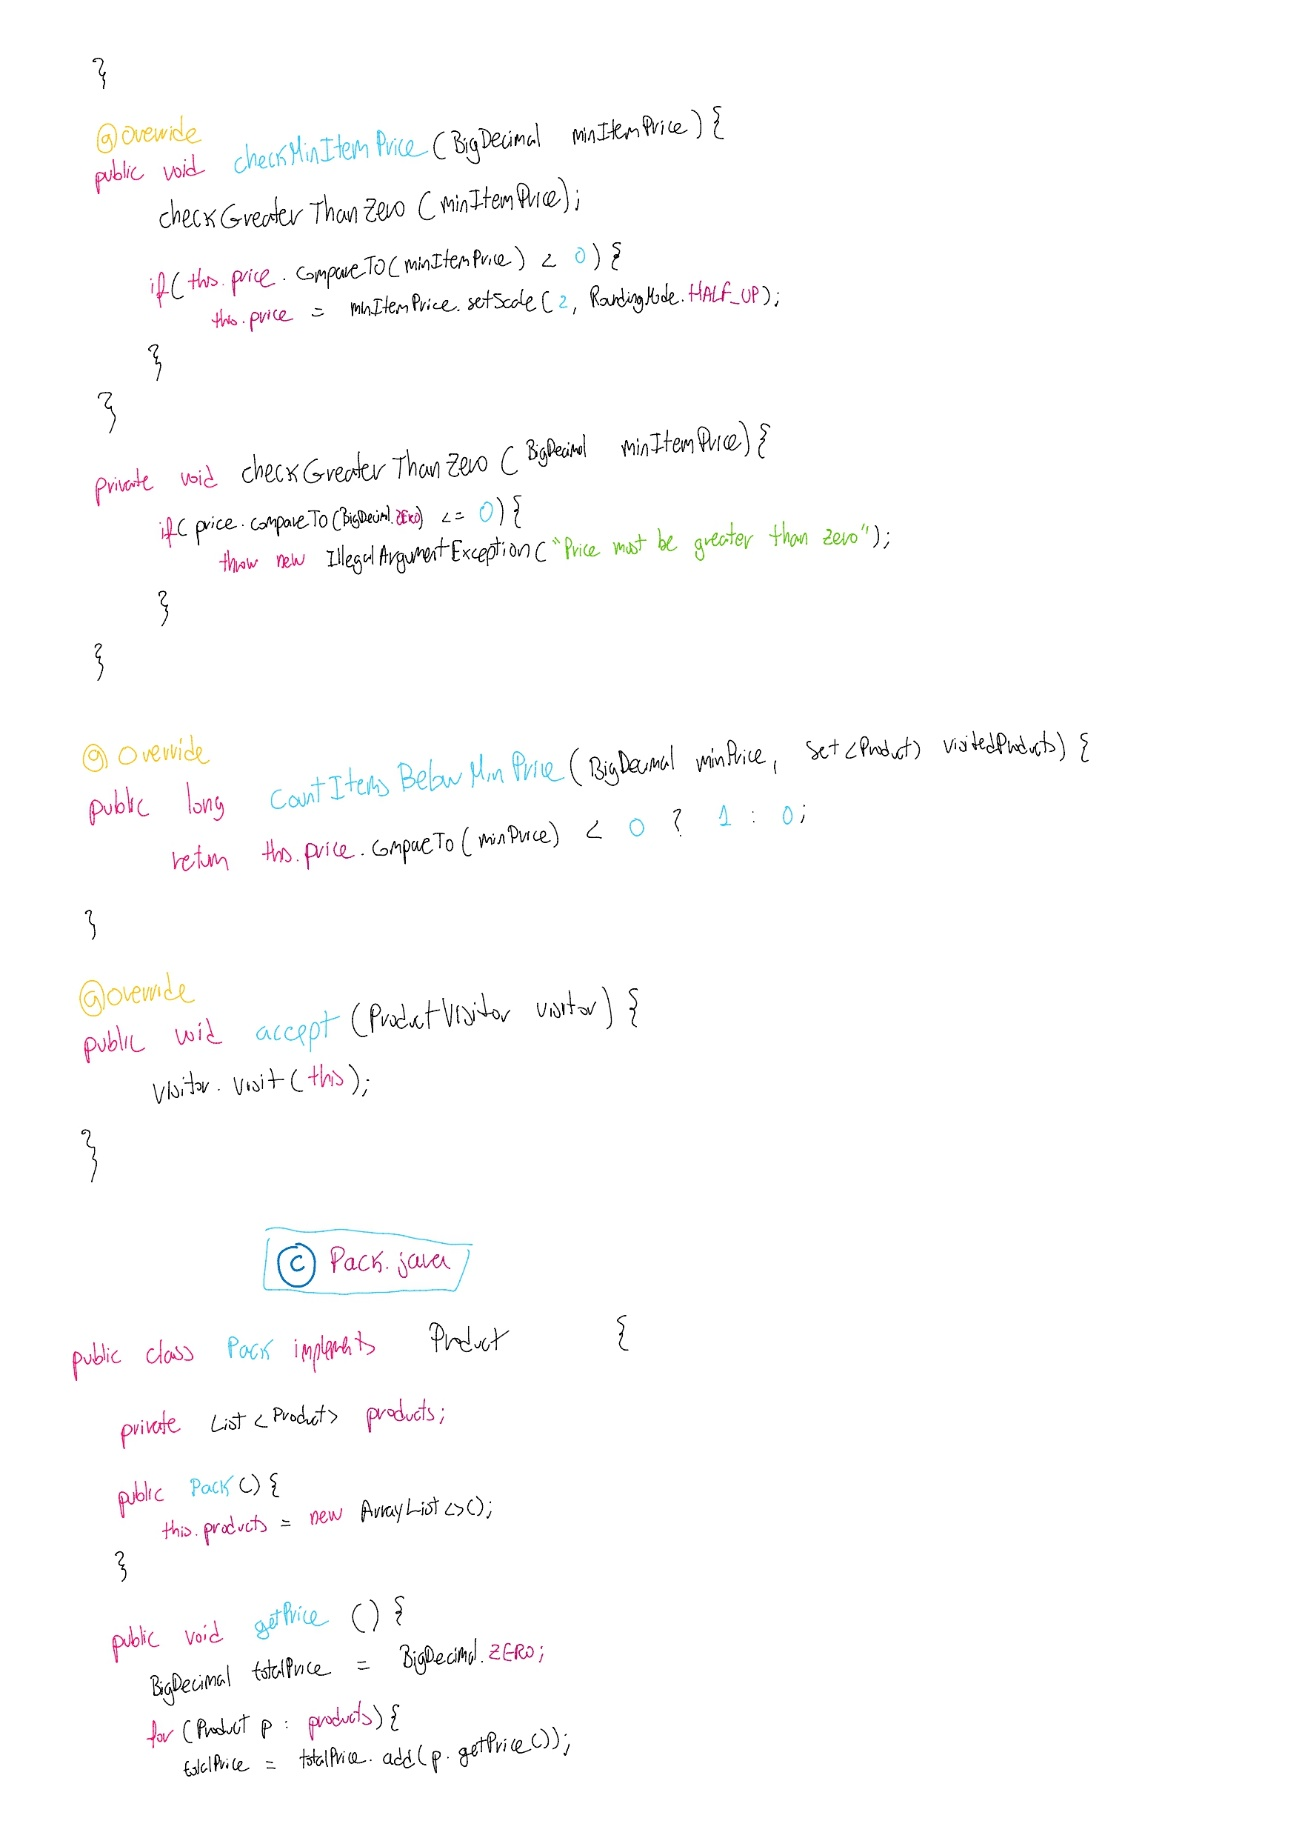 }
@Override
public void checkMinItemPrice (BigDecimal minItemPrice) {
checkGreaterThanZero (minItemPrice);
if( this.price . compareTo(minItemPrice) < 0 ) {
this.price = minItemPrice.setScale ( 2, RoundingMode.HALF_UP);
}
}
private void checkGreaterThanZero ( BigDecimal minItemPrice) {
if( price . compareTo (BigDecimal.ZERO) <= 0 ) {
throw new IllegalArgumentException ( "Price must be greater than zero" );
}
}
@Override
public long CountItemsBelowMinPrice ( BigDecimal minPrice, Set <Product> visitedProducts) {
return this.price . compareTo ( minPrice) < 0 ? 1 : 0 ;
}
@override
public void accept (ProductVisitor visitor) {
visitor. visit ( this );
}
C Pack.java
public class Pack implements Product {
private List <Product> products;
public Pack () {
this.products = new ArrayList <>();
}
public void getPrice () {
BigDecimal totalPrice = BigDecimal. ZERO;
for (Product p : products) {
totalPrice = totalPrice. add( p. getPrice ());